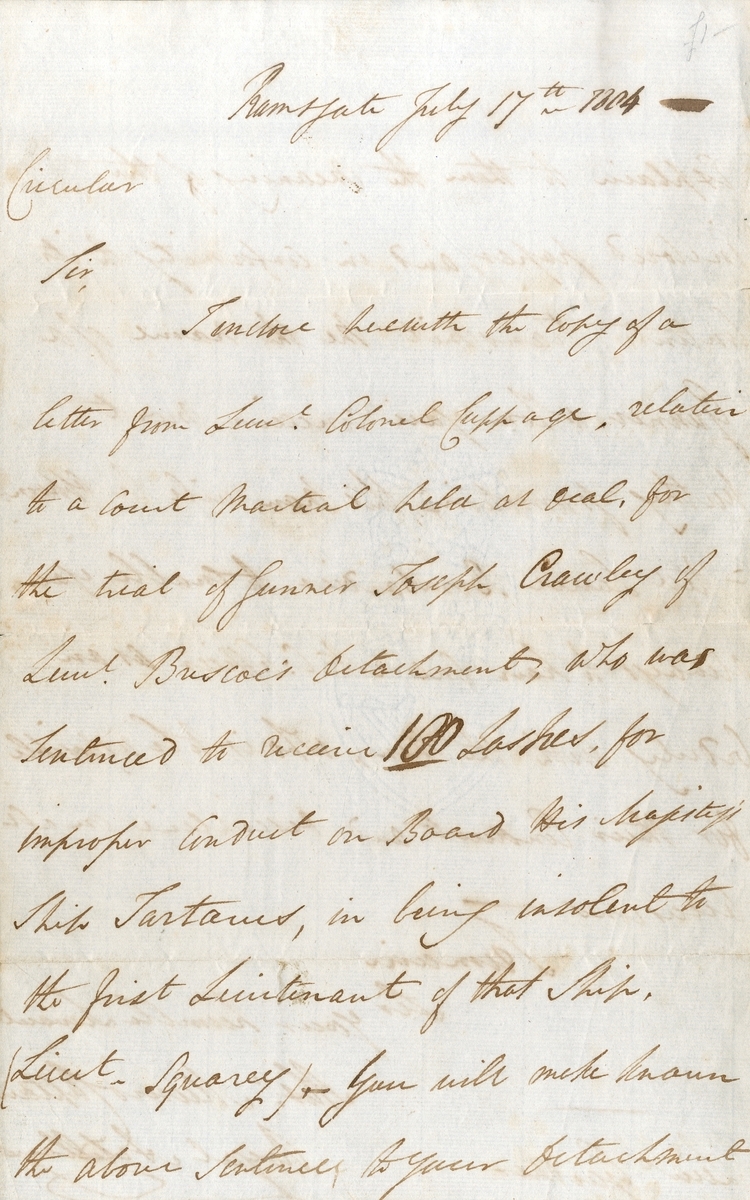 Ramsgate July 17th 1804 —
Circular
Sir,
I inclose herewith the Copy of a
letter from Lieut. Colonel Cuppage, relative
to a Court Martial held at Deal, for
the trial of Gunner Joseph Crawley of
Lieut. Briscoe's detachment, who was
Sentenced to receive 100 Lashes, for
improper Conduct on Board His Majesty's
Ship Tartarus, in being insolent to
the first Lieutenant of that Ship.
(Lieut. Squarey) – You will make known
the above Sentence to your detachment